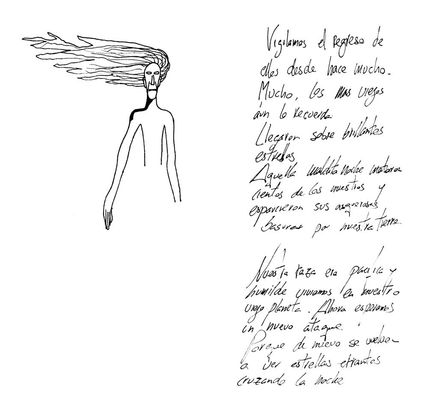 Vigilamos el regreso de
ellos desde hace mucho.
Mucho, los mas viejos
aún lo recuerda
Llegaron sobre brillantes
estrellas
Aquella maldita noche mataron
cientos de los nuestros y
esparcieron sus asquerosas
basuras por nuestra tierra.
Nuestra raza era pacifica y
humilde viviamos en nuestro
viejo planeta. Ahora esperamos
un nuevo ataque.
Porque de nuevo se vuelven
a ver estrellas errantes
cruzando la noche